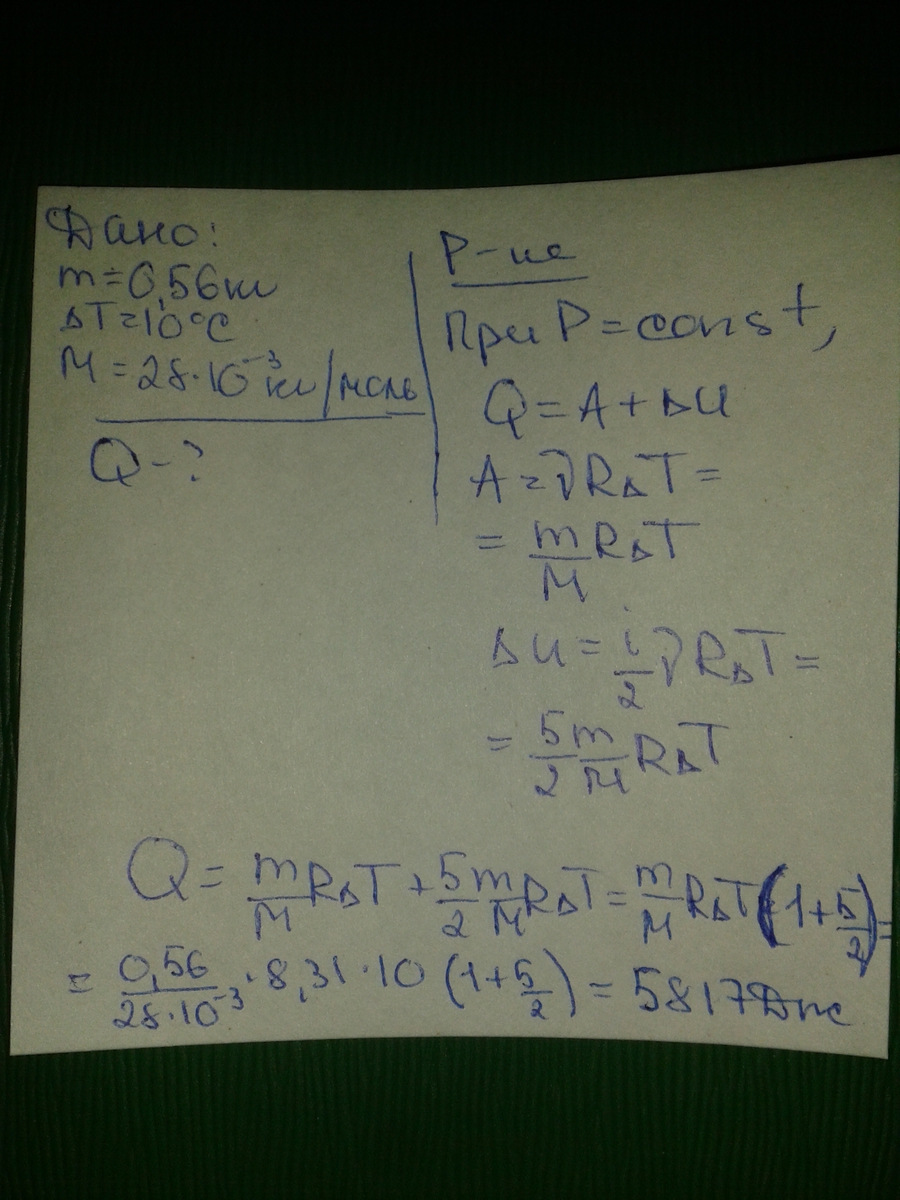 Дано:
m=0,56кг
ΔT=10°C
M=28·10⁻³кг/моль
Q-?
Р-ие
При P=const,
Q=A+ΔU
A=νRΔT=
=m/M RΔT
ΔU=i/2 νRΔT=
=5/2 m/M RΔT
Q=m/M RΔT+5/2 m/M RΔT=m/M RΔT(1+5/2)=
=0,56/28·10⁻³·8,31·10(1+5/2)=5817Дж